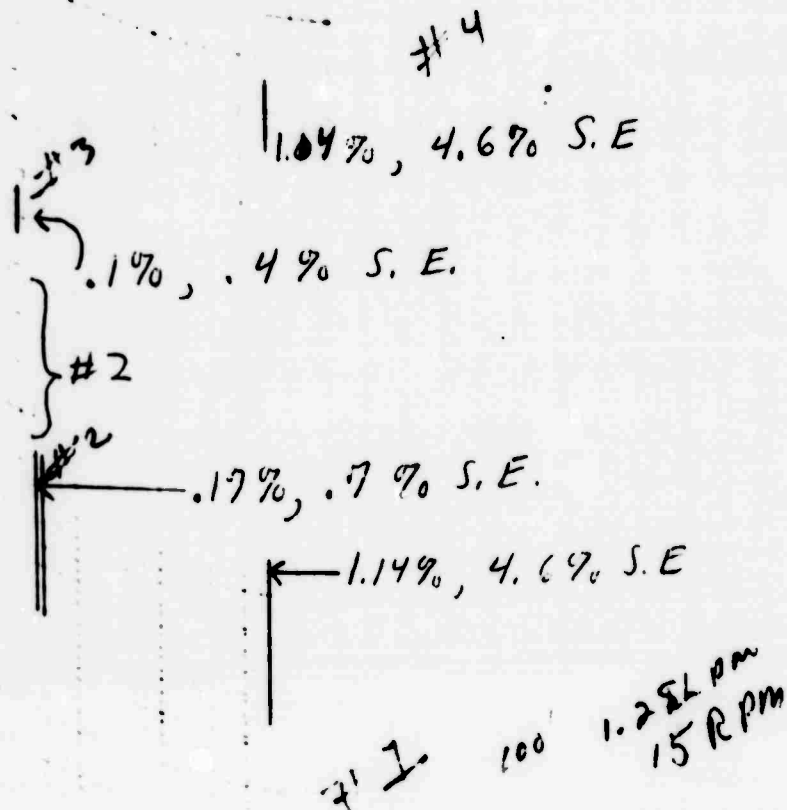 #4
1.04%, 4.6% S.E
#3
.1%, .4% S. E.
#2
#2
.17%, .7% S. E.
1.14%, 4.6% S.E
1. 100' 15 RPM